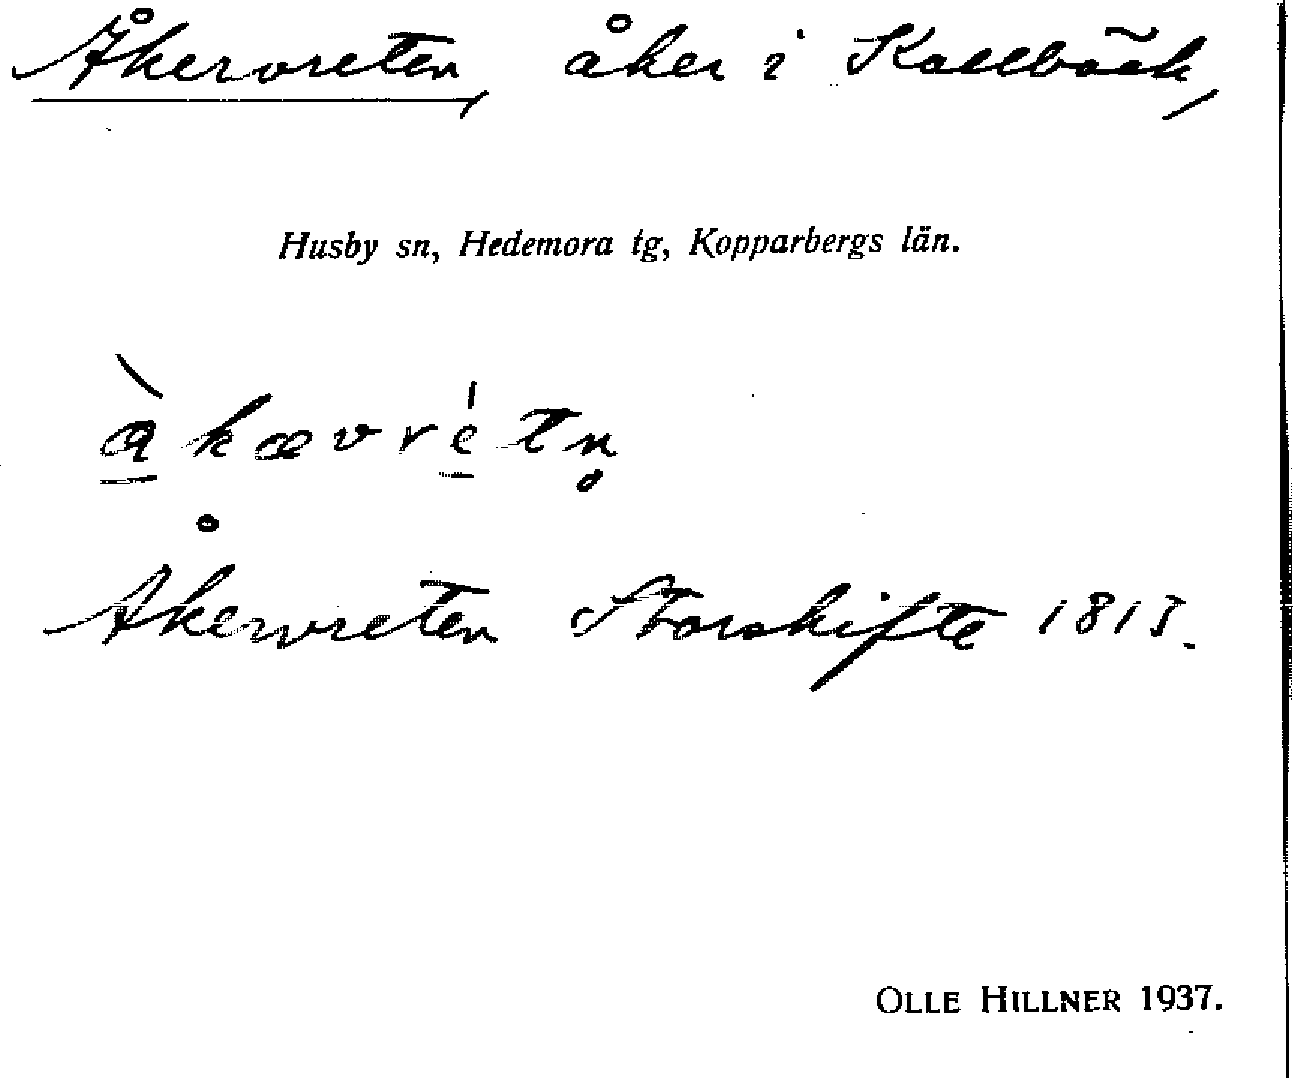 Åkervreten, åker i Kallbäck,
Husby sn, Hedemora tg, Kopparbergs län.
ὰkævrétn̥
Åkervreten Storskifte 1813.
OLLE HILLNER 1937.